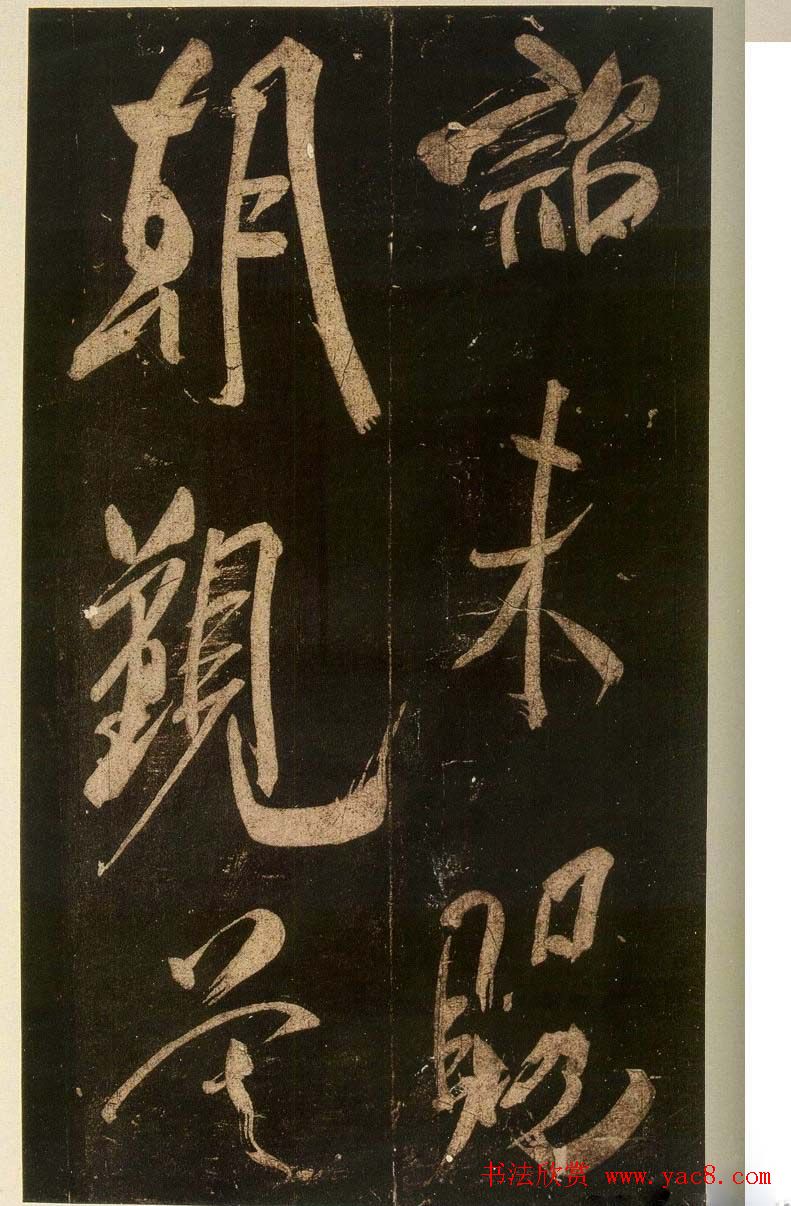 詔未賜
朝覲
书法欣赏 www.yac8.com